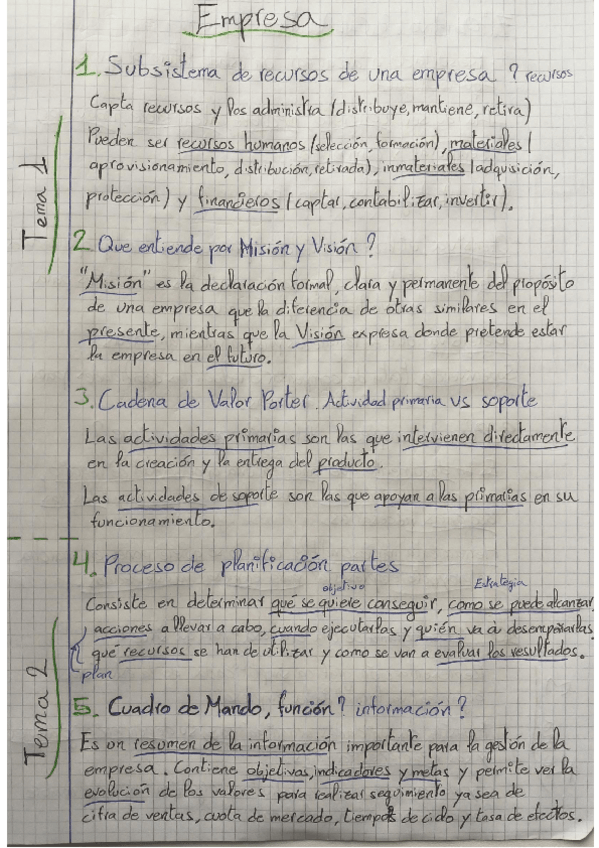 Empresa
Tema 1
1. Subsistema de recursos de una empresa? recursos
Capta recursos y los administra (distribuye, mantiene, retira)
Pueden ser recursos humanos (selección, formación), materiales (
aprovisionamiento, distribución, retirada), inmateriales (adqusición,
protección) y financieros (captar, contabilizar, invertir).
2 Que entiende por Misión y Visión?
"Misión" es la declaración formal, clara y permanente del propósito
de una empresa que la diferencia de otras similares en el
presente, mientras que la Visión expresa donde pretende estar
la empresa en el futuro.
3. Cadena de Valor Porter. Actividad primaria vs soporte
Las actividades primarias son las que intervienen directamente
en la creación y la entrega del producto.
Las actividades de soporte son las que apoyan a las primarias en su
funcionamiento.
Tema 2
4. Proceso de planificación partes
objetivo Estrategia
Consiste en determinar qué se quiere conseguir, como se puede alcanzar,
acciones a llevar a cabo, cuando ejecutarlas y quién va a desempeñarlas,
qué recursos se han de utilizar y como se van a evaluar los resultados.
plan
5. Cuadro de Mando, función? información?
Es un resumen de la información importante para la gestión de la
empresa. Contiene objetivos, indicadores y metas y permite ver la
evolución de los valores para realizar seguimiento ya sea de
cifra de ventas, cuota de mercado, tiempos de ciclo y tasa de efectos.